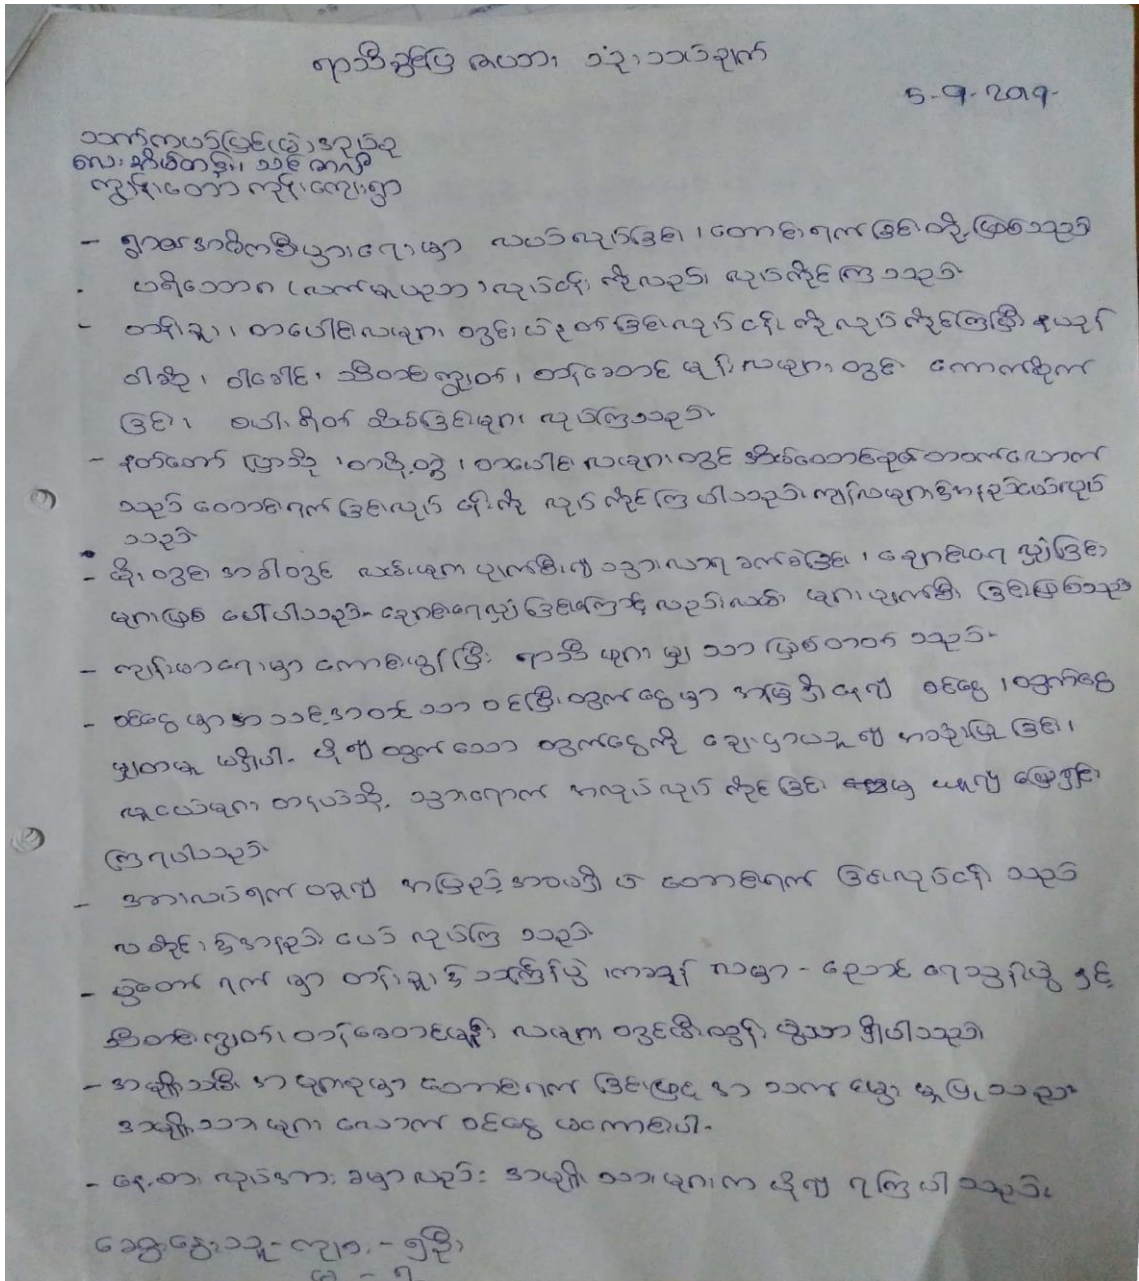 ရာသီခွင်ပြ ဇယား သုံးသပ်ချက်
5-9-2019-
သက်ကယ်ပြင်(မြို့)အုပ်စု
လေးအိမ်တန်း၊ သင်
ကျွန်းတော ကုန်းကျေးရွာ
- ရွာ၏အဓိကစီးပွားရေးမှာ လယ်လုပ်ခြင်း၊ တောင်းရက်ခြင်းတို့ ဖြစ်သည်
. ပရိဘောဂ (လက်မှုပညာ) လုပ်ငန်း ကိုလည်း လုပ်ကိုင်ကြသည်
- တန်ခူး၊ တပေါင်းလများ တွင် လုပ်ငန်း ကို လုပ်ကိုင်ကြပြီး နယုန်
ဝါဆို၊ ဝါခေါင်၊ သီတင်းကျွတ်၊ တန်ဆောင်မုန်းလများ တွင် ကောက်စိုက်
ခြင်း၊ စပါးရိတ်သိမ်းခြင်းများ လုပ်ကြသည်
- နတ်တော် ပြာသို ၊တပို့တွဲ ၊ တပေါင်း လများတွင် အိမ်ထောင်စုတဝက်လောက်
သည် တောင်းရက်ခြင်းလုပ်ငန်းကို လုပ်ကိုင်ကြပါသည်၊ ကျန်လများ၌အနည်းငယ်လုပ်
သည်
- မိုးတွင်းအခါတွင် လမ်းများ ပျက်စီး၍ သွားလာရခက်ခဲခြင်း၊ ချောင်းရေလျှံခြင်း
များဖြစ်ပေါ်ပါသည်- ချောင်းရေလျှံခြင်းကြောင့်လည်းလမ်းများပျက်စီးခြင်းဖြစ်သည်
- ကျန်းမာရေးမှာ ကောင်းမွန်ပြီး ရာသီ များ၌ သာ ဖြစ်တတ်သည်-
- ဝင်ငွေမှာ အသင့်အတင့်သာ ဝင်ပြီး ထွက်ငွေမှာ အမြဲရှိနေ၍ ဝင်ငွေ၊ ထွက်ငွေ
မျှတမှု မရှိပါ- ပို၍ ထွက်သော ထွက်ငွေကို ချေးငှားယူ၍ အသုံးပြုခြင်း၊
လူငယ်များ တနယ်သို့ သွားရောက် အလုပ်လုပ်ကိုင်ခြင်းမှ ယူ၍ ဖြေရှင်း
ကြရပါသည်
- အားလပ်ရက် ဟူ၍ အမြဲ မရှိဘဲ တောင်းရက်ခြင်းလုပ်ငန်း သည်
လတိုင်း၌အနည်းငယ် လုပ်ကြသည်
- ပွဲတော်ရက် မှာ တန်ခူး၌ သင်္ကြန်ပွဲ ၊ကဆုန် လမှာ - ညောင်ရေသွန်းပွဲ နှင့်
သီတင်းကျွတ်၊ တန်ဆောင်မုန်း လများ တွင်မီးထွန်းပွဲသာ ရှိပါသည်
- အမျိုးသမီး အများစုမှာ တောင်းရက်ခြင်းဖြင့် အသက်မွေးမှုပြုသည်
အမျိုးသားများ လောက် ဝင်ငွေ မကောင်းပါ-
- နေ့စား လုပ်အား ခမှာလည်း အမျိုးသားများက ပို၍ ရကြပါသည်း
ဆွေးနွေးသူ - ကျား - ၅ဦး
မ - ၇